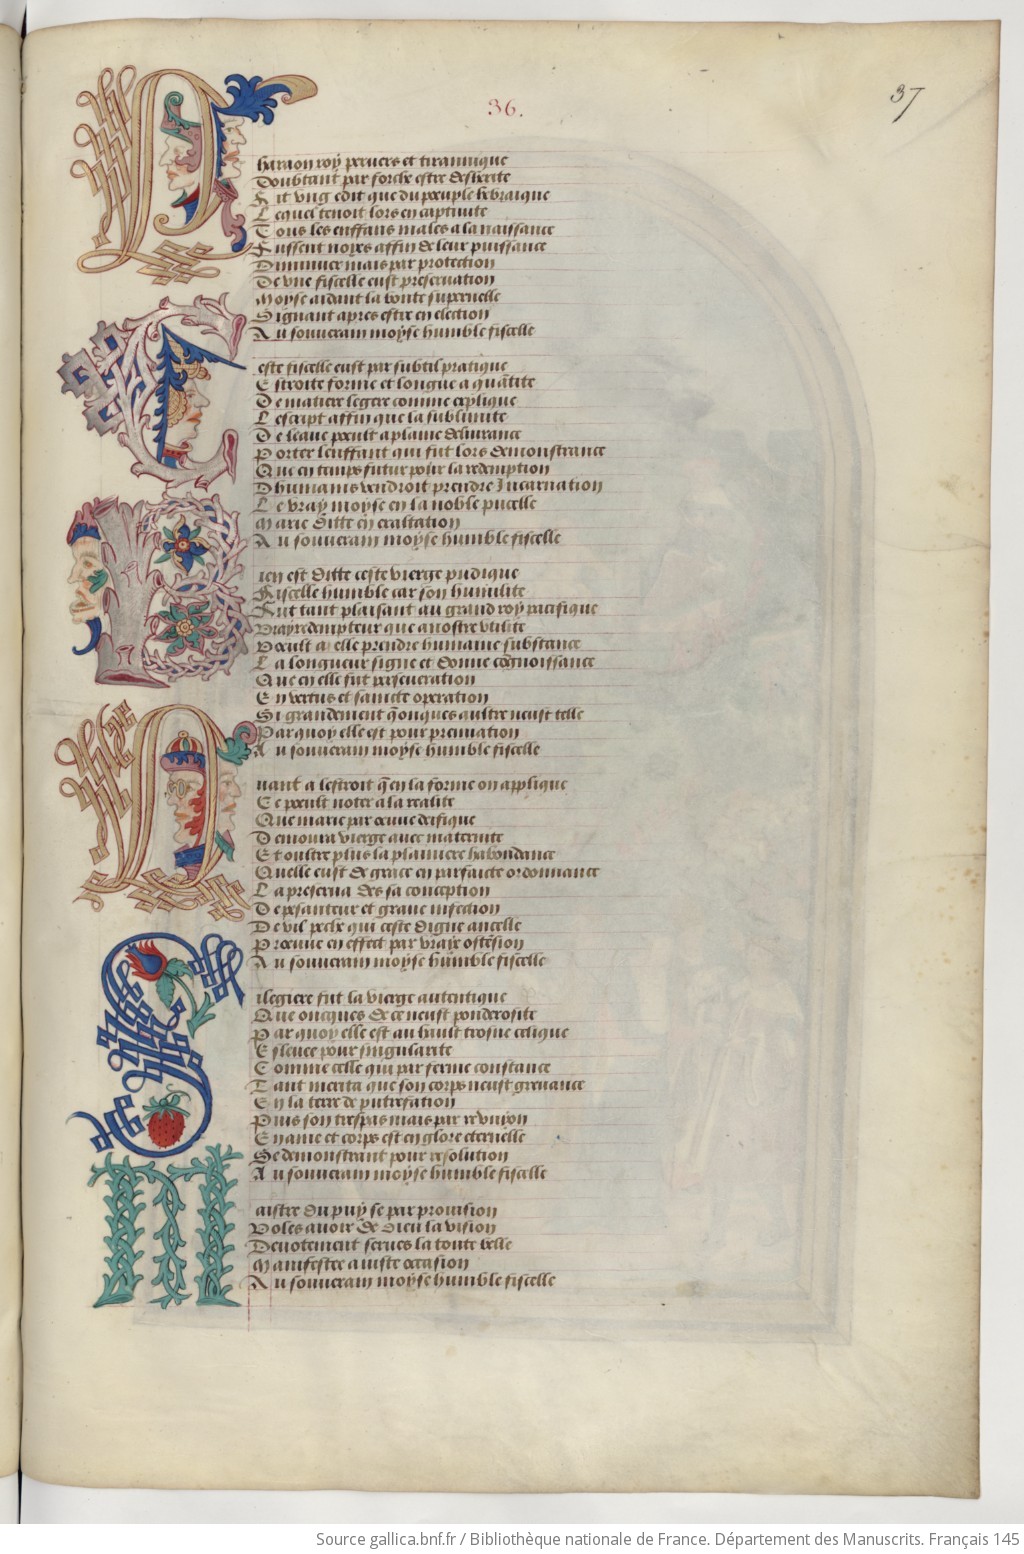 36.
37
Pharaon roy peruers et tirannique
Doubtant par force estre desherite
Fit vng edit que du peuple hebraique
Lequel tenoit lors en captiuite
Tous les enffans males a la naissance
Fussent noyes affin de leur puissance
Diminuer mais par protection
De vne fiscelle eust preseruation
Moyse aidant la bonte supernelle
Signant apres estre en election
Au souuerain moyse humble fiscelle
Ceste fiscelle eust par subtil pratique
Estroite forme et longue a quātite
De matiere legere comme explique
Lescript affin que la sublimite
De leaue peult a plaine deliurance
Porter lenffant qui fut lors demonstrance
Que en temps futur pour la redemption
Dhumains vendroit prendre Incarnation
Le vray moyse en la noble pucelle
Marie ditte en exaltation
Au souuerain moyse humble fiscelle
Bien est ditte ceste vierge pudique
Fiscelle humble car son humilite
Fut tant plaisant au grand roy pacifique
Vray redempteur que a nostre vtilite
Voeult a elle prendre humaine substance
La longueur signe et donne cōgnoissance
Que en elle fut perseueration
En vertus et saincte operation
Si grandement q̄ onques aultre neust telle
Par quoy elle est pour premiation
Au souuerain moyse humble fiscelle
Quant a lestroit q̄ en la forme on applique
Se poeult noter a la realite
Que marie par oeuure deifique
Demoura vierge auec maternite
Et oultre plus la planiere habondance
Quelle eust de grace en parfaicte ordonnance
La preserua des sa conception
De pesanteur et graue infection
De vil peche qui ceste digne ancelle
Proeuue en effect par vraye ostēsion
Au souuerain moyse humble fiscelle
Si legiere fut la vierge autentique
Que oncques de ce neust ponderosite
Par quoy elle est au hault trosne celique
Eslevee pour singularite
Comme celle qui par ferme constance
Tant merita que son corps neust greuance
En la terre de putrefation
Puis son trespas mais par revnion
En ame et corps est en glore eternelle
Se demonstrant pour resolution
Au souuerain moyse humble fiscelle
Maistre du puy se par prouision
Voles auoir de dieu la vision
Deuotement serues la toute belle
Manifestee a iuste occasion
Au souuerain moyse humble fiscelle
Source gallica.bnf.fr / Bibliothèque nationale de France. Département des Manuscrits. Français 145